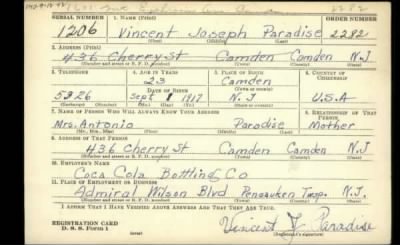 SERIAL NUMBER 1. NAME (Print) ORDER NUMBER
1206 Vincent Joseph Paradise 2282
(First) (Middle) (Last)
2. ADDRESS (Print)
436 Cherry St Camden Camden N.J
(Number and street or R. F. D. number) (Town) (County) (State)
3. TELEPHONE 4. AGE IN YEARS 5. PLACE OF BIRTH 6. COUNTRY OF CITIZENSHIP
23 Camden
DATE OF BIRTH (Town or county)
5226 Sept 1917 N.J U.S.A
(Exchange) (Number) (Mo.) (Day) (Yr.) (State or country)
7. NAME OF PERSON WHO WILL ALWAYS KNOW YOUR ADDRESS 8. RELATIONSHIP OF THAT PERSON
Mrs. Antonio Paradise Mother
(Mr., Mrs., Miss) (First) (Middle) (Last)
9. ADDRESS OF THAT PERSON
436 Cherry St Camden Camden N.J
(Number and street or R. F. D. number) (Town) (County) (State)
10. EMPLOYER'S NAME
Coca Cola Bottling Co
11. PLACE OF EMPLOYMENT OR BUSINESS
Admiral Wilson Blvd Pensauken Twsp. N.J.
(Number and street or R. F. D. number) (Town) (County) (State)
I AFFIRM THAT I HAVE VERIFIED ABOVE ANSWERS AND THAT THEY ARE TRUE.
REGISTRATION CARD
D. S. S. Form 1 Vincent J. Paradise
(Registrant's signature)